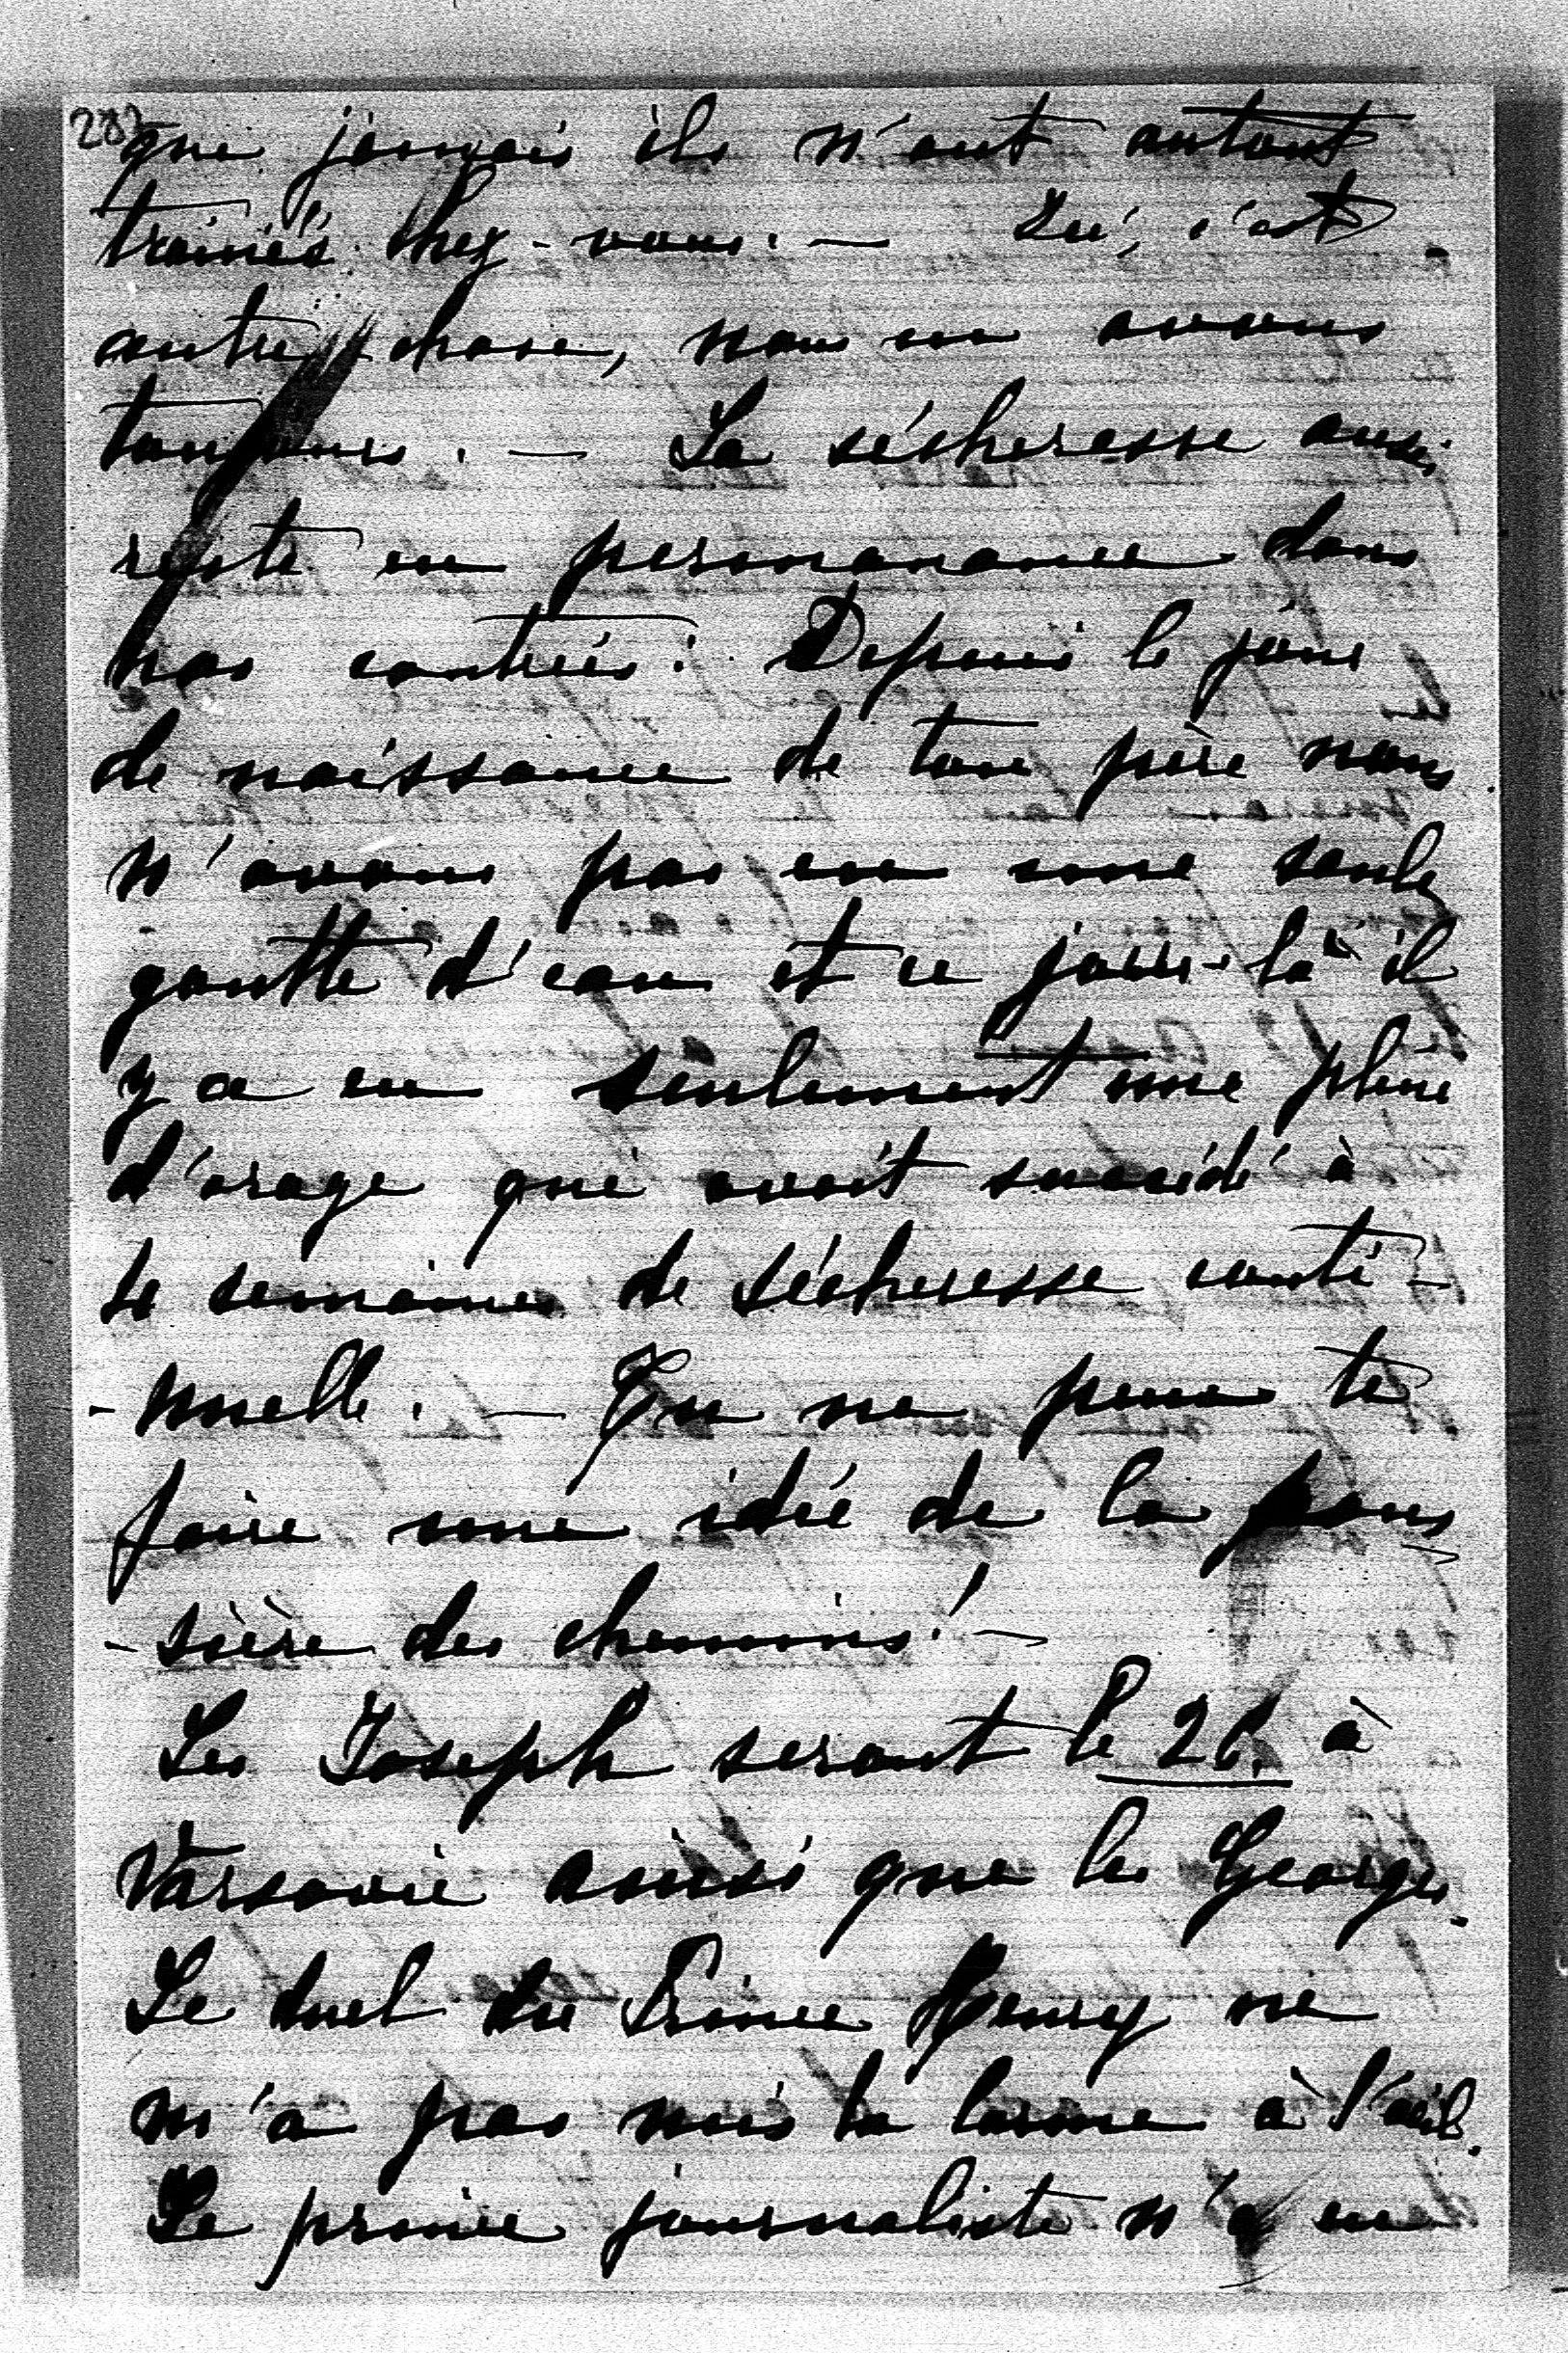 287
que jamais ils n'ont autant
traînés chez-vous. — Ici, c'est
autre chose, nous en avons
toujours. — La sécheresse aussi
reste en permanance dans
nos contrées. Depuis le jour
de naissance de ton père nous
n'avons pas eu une seule
goutte d'eau et ce jour-là il
y a eu seulement une pluie
d'orage qui avait succédé à
4 semaines de sécheresse conti-
-nuelle. — Tu ne peux te
faire une idée de la pous
-sière des chemins! —
Les Joseph seront le 26. à
Varsovie ainsi que les Georges.
Le duel du Prince Henry ne
m'a pas mis la larme à l'œil.
Le prince journaliste n'a eu